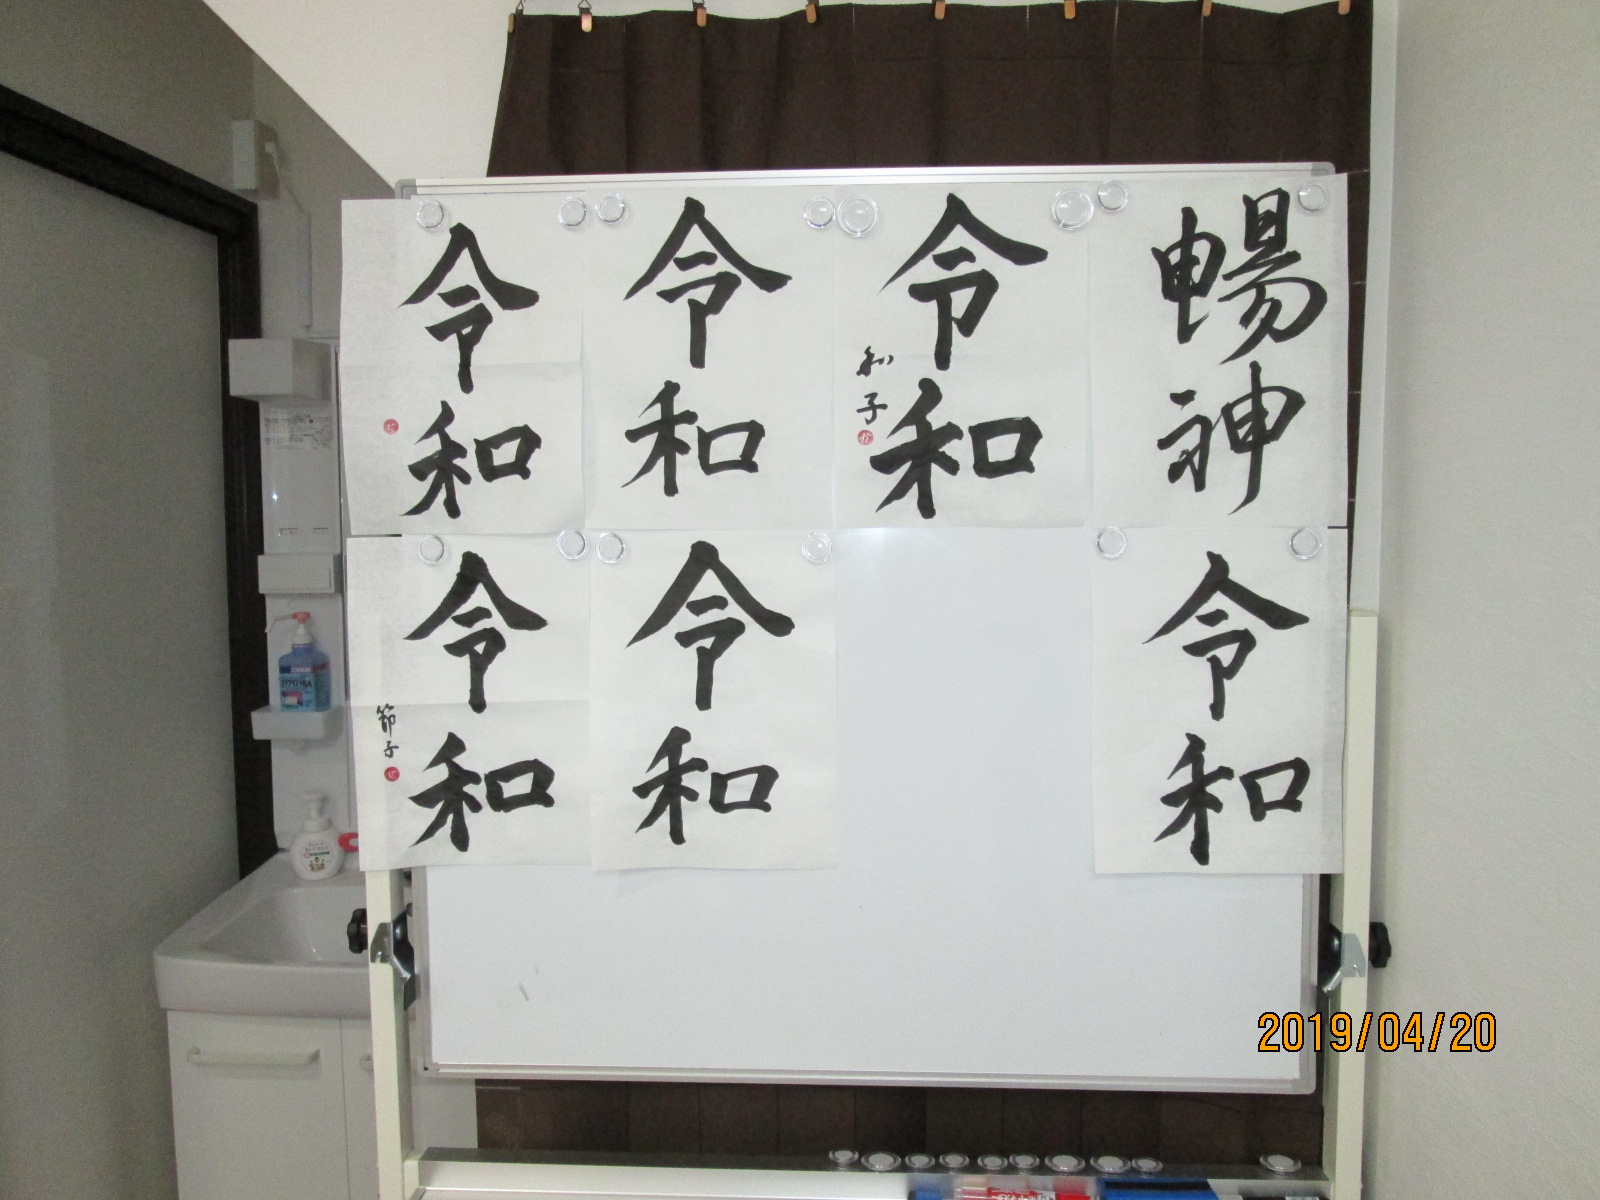 暢神
令和
和子
令和
令和
令和
令和
令和
節子
2019/04/20